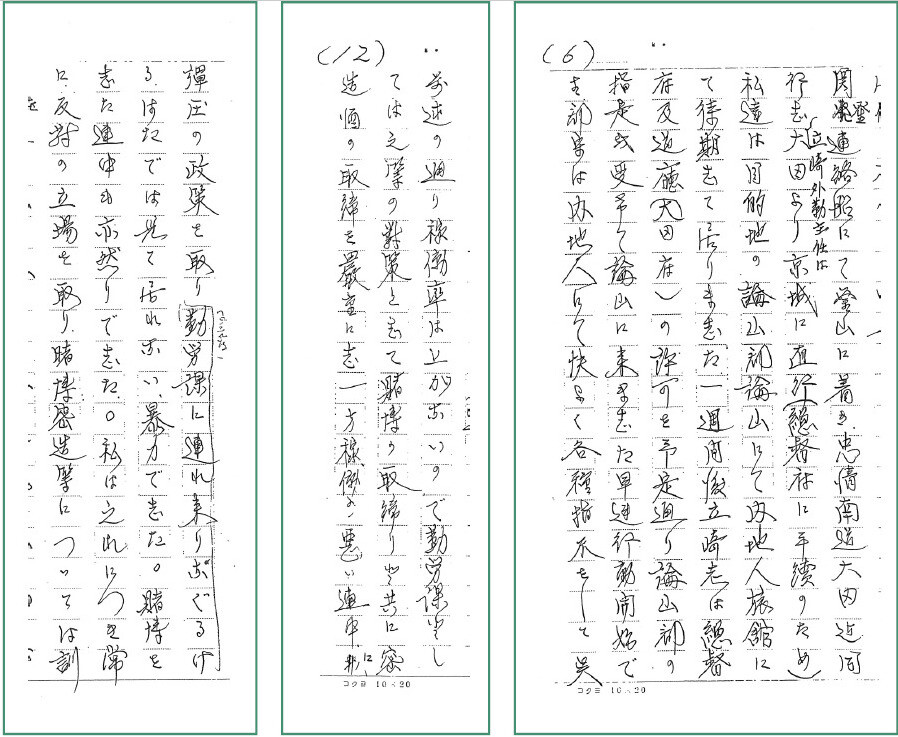 (6)
関釜連絡船にて釜山に着き忠清南道大田迄同
行し大田より立崎外勤主任は京城に直行総督府に手続のため
私達は目的地の論山郡論山にて内地人旅館に
て待期して居りました一週間後立崎氏は總督
府及道廳(大田府)の許可を予定通り論山郡の
指定を受けて論山に来ました早速行動開始で
す郡守は内地人にて快よく各種指示をして呉
コクヨ 10×20
(12)
前述の通り稼働率は上がないので勤労課とし
ては之等の対策として賭博の取締りと共に密
造酒の取締を嚴重にし一方稼働の悪い連中には
コクヨ 10×20
弾圧の政策を取り勤労課に連れ来りなぐるけ
る、はたでは見て居れない、暴力でした。賭博を
した連中も亦然りでした。私は之れにつき常
に反対の立場を取り賭博密造等については訓